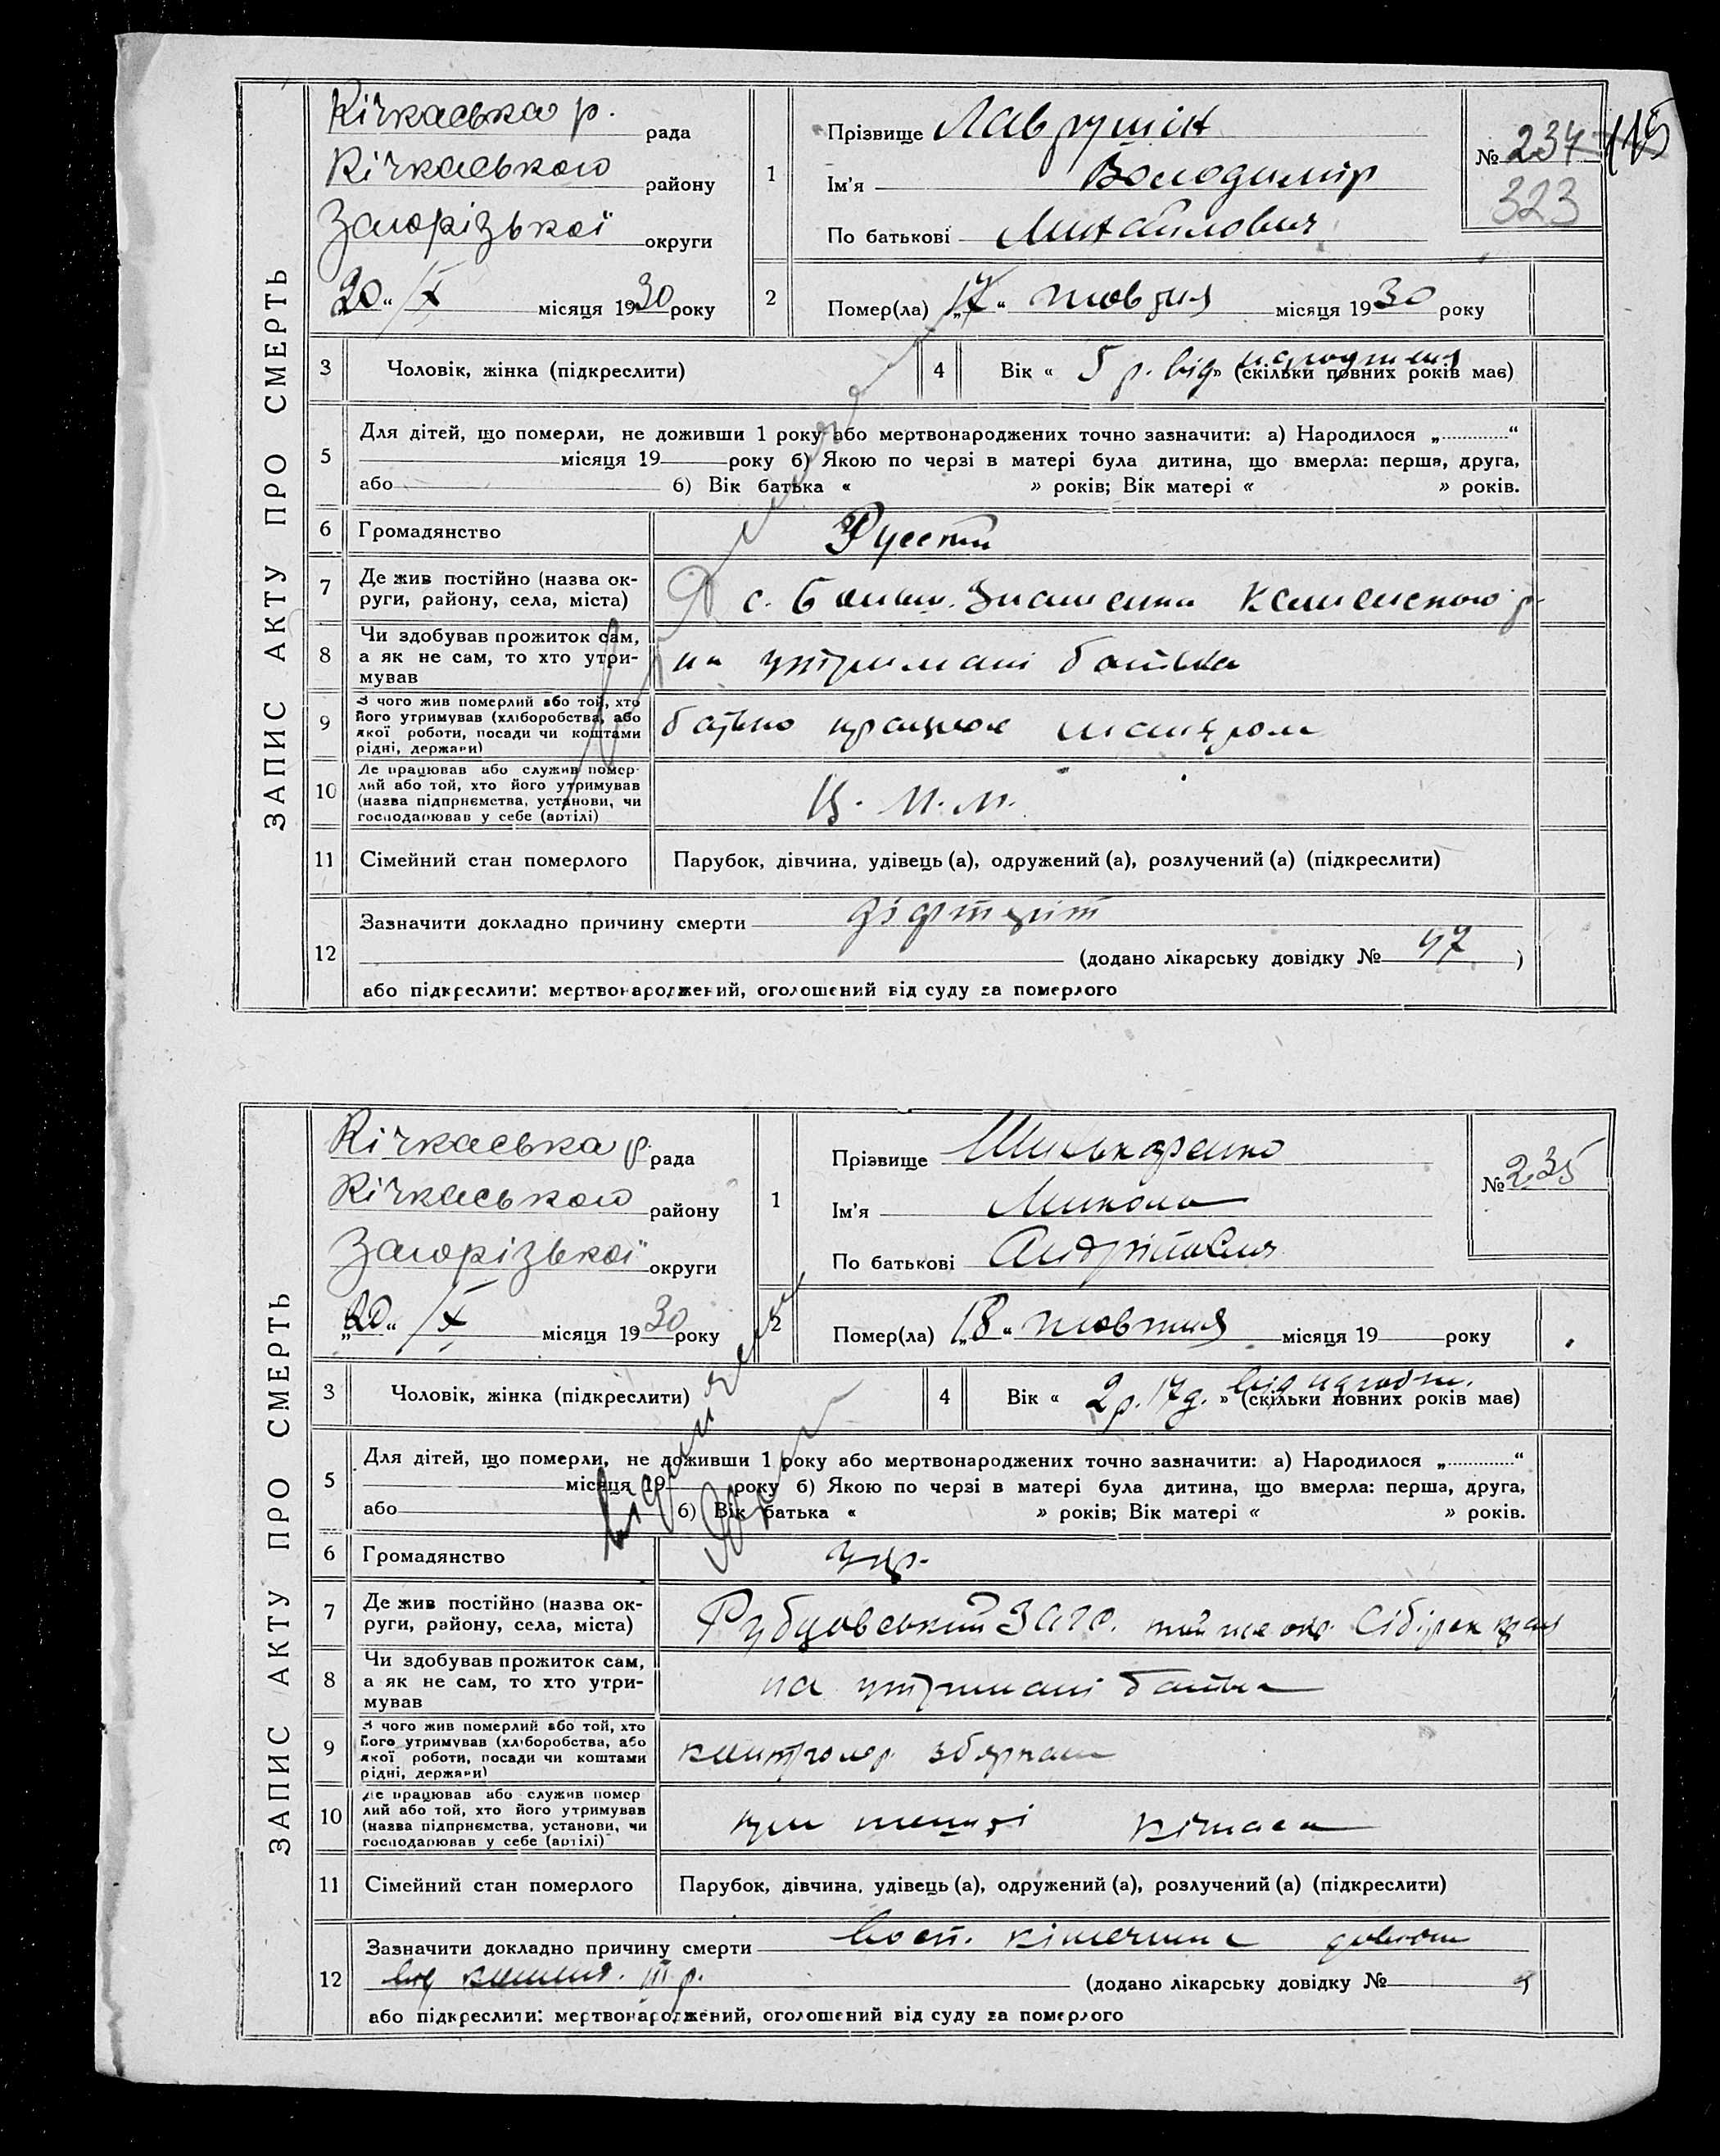 ЗАПИС АКТУ ПРО СМЕРТЬ
Кічкаська р. рада
Кічкаського району
Запорізької округи
20 "/X місяця 1930 року
1 Прізвище Лаврушін
Ім'я Володимір
По батькові Михайлович
№ 234 115
323
2 Помер(ла) „17" жовтня місяця 1930 року
3 Чоловік, жінка (підкреслити)
4 Вік « 5 р. від народження » (скільки повних років має)
5 Для дітей, що померли, не доживши 1 року або мертвонароджених точно зазначити: а) Народилося „ “
місяця 19 року б) Якою по черзі в матері була дитина, що вмерла: перша, друга,
або б) Вік батька « » років; Вік матері « » років.
6 Громадянство Руский
7 Де жив постійно (назва ок-
руги, району, села, міста) с. Больш. Знаменка Каменского р.
8 Чи здобував прожиток сам,
а як не сам, то хто утри-
мував на утримані батька
9 З чого жив померлий або той, хто
його утримував (хліборобства, або
якої роботи, посади чи коштами
рідні, держави) батько працює
10 Де працював або служив помер-
лий або той, хто його утримував
(назва підприємства, установи, чи
господарював у себе (артілі)
11 Сімейний стан померлого Парубок, дівчина, удівець (а), одружений (а), розлучений (а) (підкреслити)
12 Зазначити докладно причину смерти дифтеріт
(додано лікарську довідку № 47 )
або підкреслити: мертвонароджений, оголошений від суду за померлого
ЗАПИС АКТУ ПРО СМЕРТЬ
Кічкаська р. рада
Кічкаського району
Запорізької округи
„20" /X місяця 1930 року
1 Прізвище
Ім'я Микола
По батькові Андрійович
№ 235
2 Помер(ла) „18" жовтня місяця 19 року
3 Чоловік, жінка (підкреслити)
4 Вік « 2 р. 17 д. від народж. » (скільки повних років має)
5 Для дітей, що померли, не доживши 1 року або мертвонароджених точно зазначити: а) Народилося „ “
місяця 19 року б) Якою по черзі в матері була дитина, що вмерла: перша, друга,
або б) Вік батька « » років; Вік матері « » років.
6 Громадянство укр.
7 Де жив постійно (назва ок-
руги, району, села, міста) Рубцовський ЗАГС. той же окр. Сібірск края
8 Чи здобував прожиток сам,
а як не сам, то хто утри-
мував на утримані батька
9 З чого жив померлий або той, хто
його утримував (хліборобства, або
якої роботи, посади чи коштами
рідні, держави) контролер
10 Де працював або служив помер
лий або той, хто його утримував
(назва підприємства, установи, чи
господарював у себе (артілі) Кічкаса
11 Сімейний стан померлого Парубок, дівчина, удівець (а), одружений (а), розлучений (а) (підкреслити)
12 Зазначити докладно причину смерти
(додано лікарську довідку № )
або підкреслити: мертвонароджений, оголошений від суду за померлого